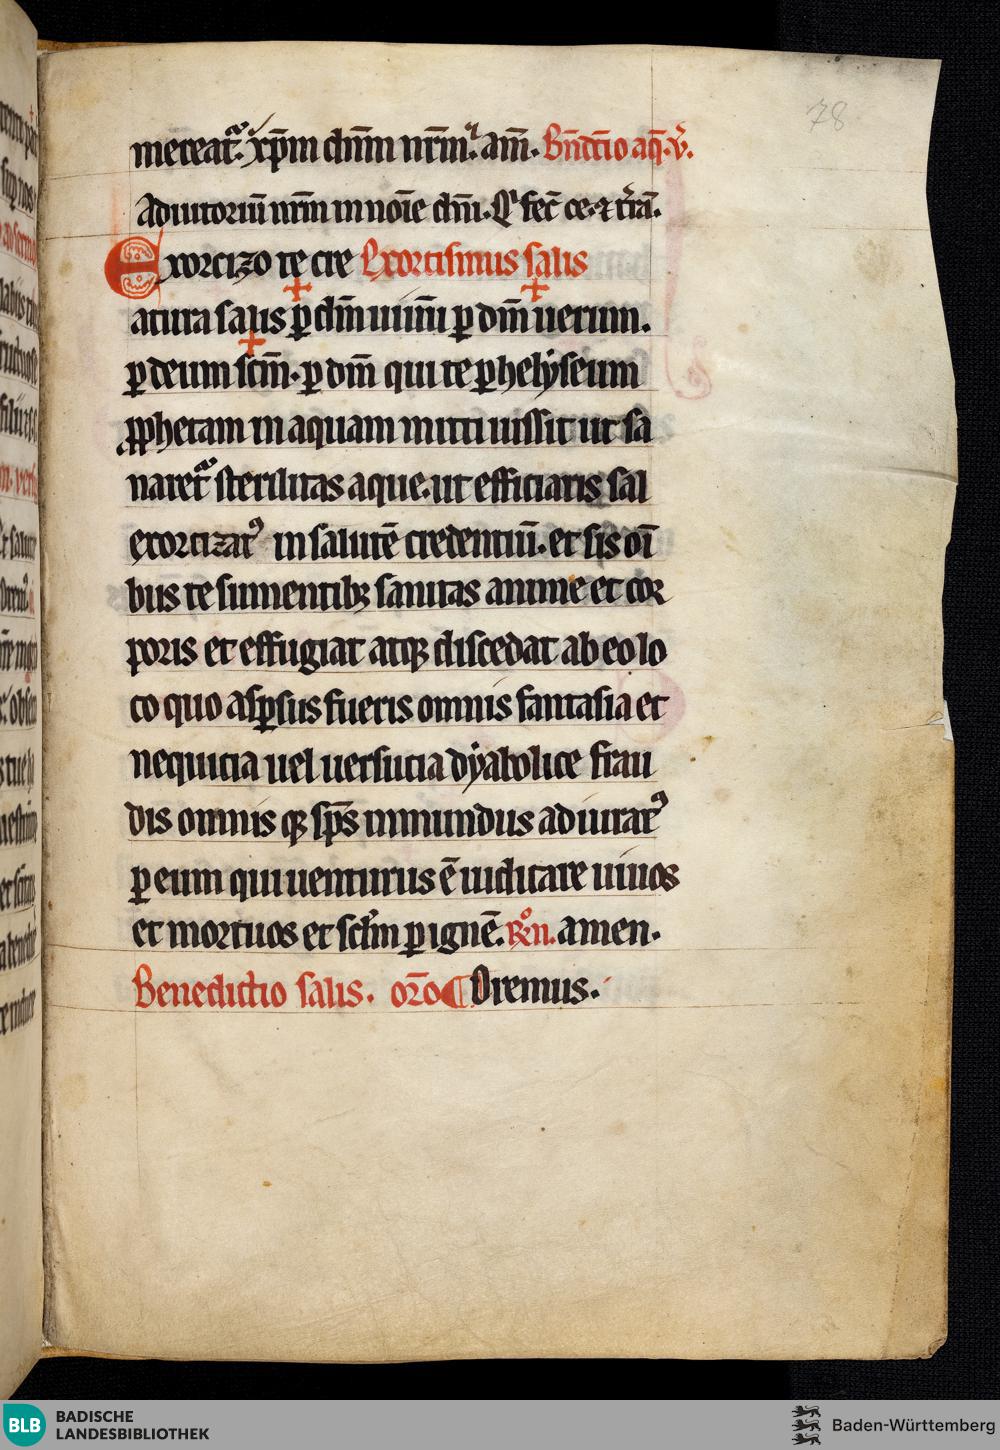 78
mereat᷑. xp̄m dn̄m nr̄m. am̄. Bn̄dctīo aq̄. v̓.
Adiutoriū nr̄m in noīe dn̄i. Qͥ fec̄ ce. ⁊ t̓rā.
Exorcizo te cre Exorcismus salis
atura salis ꝑ dn̄m uiuū ꝑ dm̄ uerum.
ꝑ deum scm̄. ꝑ dm̄ qui te ꝑ helẏseum
ꝓphetam in aquam mitti iussit ut sa
naret᷑ sterilitas aque. ut efficiaris sal
exorcizatꝰ in salutē credentiū. et sis oī
bus te sumentibꝫ sanitas anime et cor
poris et effugiat atqꝫ discedat ab eo lo
co quo asꝑsus fueris omnis fantasia et
nequicia uel uersucia dẏabolice frau
dis omnis qꝫ sp̄s inmundus adiuratꝰ
ꝑ eum qui uenturus ē iudicare uiuos
et mortuos et sclm̄ ꝑ ignē. R̓o̓n. amen.
Benedictio salis. oro̅ ¶ Oremus.
BLB BADISCHE
LANDESBIBLIOTHEK
Baden-Württemberg